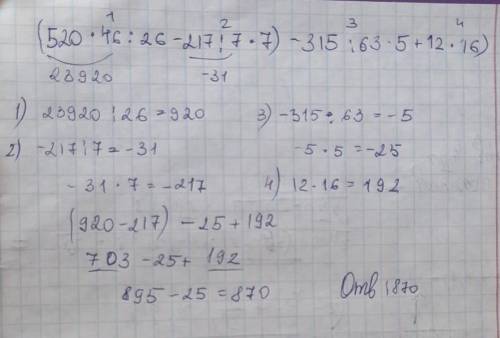 1 2 3 4
(520 · 46 : 26 - 217 : 7 · 7) - 315 : 63 · 5 + 12 · 16)
23920 -31
1) 23920 : 26 = 920
2) -217 : 7 = -31
-31 · 7 = -217
3) -315 : 63 = -5
-5 · 5 = -25
4) 12 · 16 = 192
(920 - 217) - 25 + 192
703 - 25 + 192
895 - 25 = 870
Отв : 870